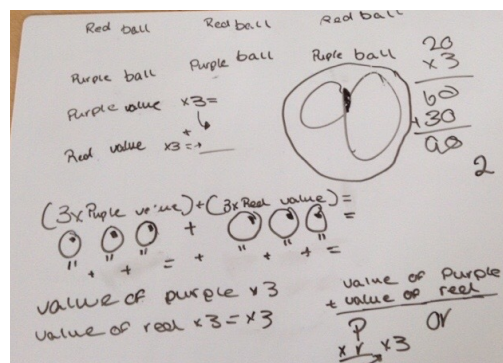 Red ball Red ball Red ball
Purple ball Purple ball Puple ball
Purple value x3=
+
Red value x3=
20
x3
60
+30
90
2
(3x Puple value) + (3x Red value) =
+ =
" + " + " = + " + " + " =
value of purple x3
value of red x3 = x3
value of Purple
+ value of red
P or
x r x3